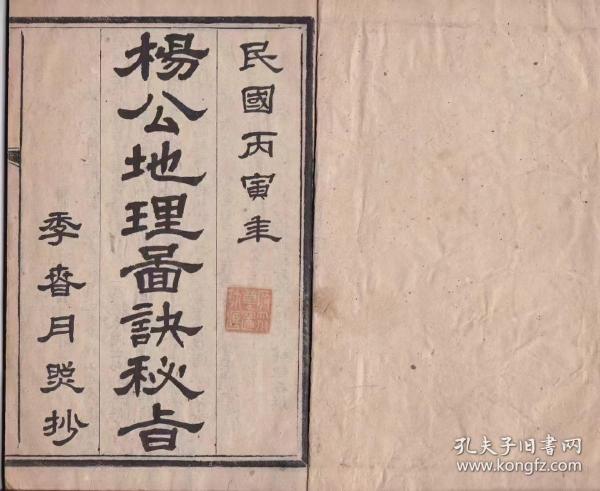 民國丙寅年
楊公地理啚訣秘旨
季春月照抄
孔夫子旧书网
www.kongfz.com